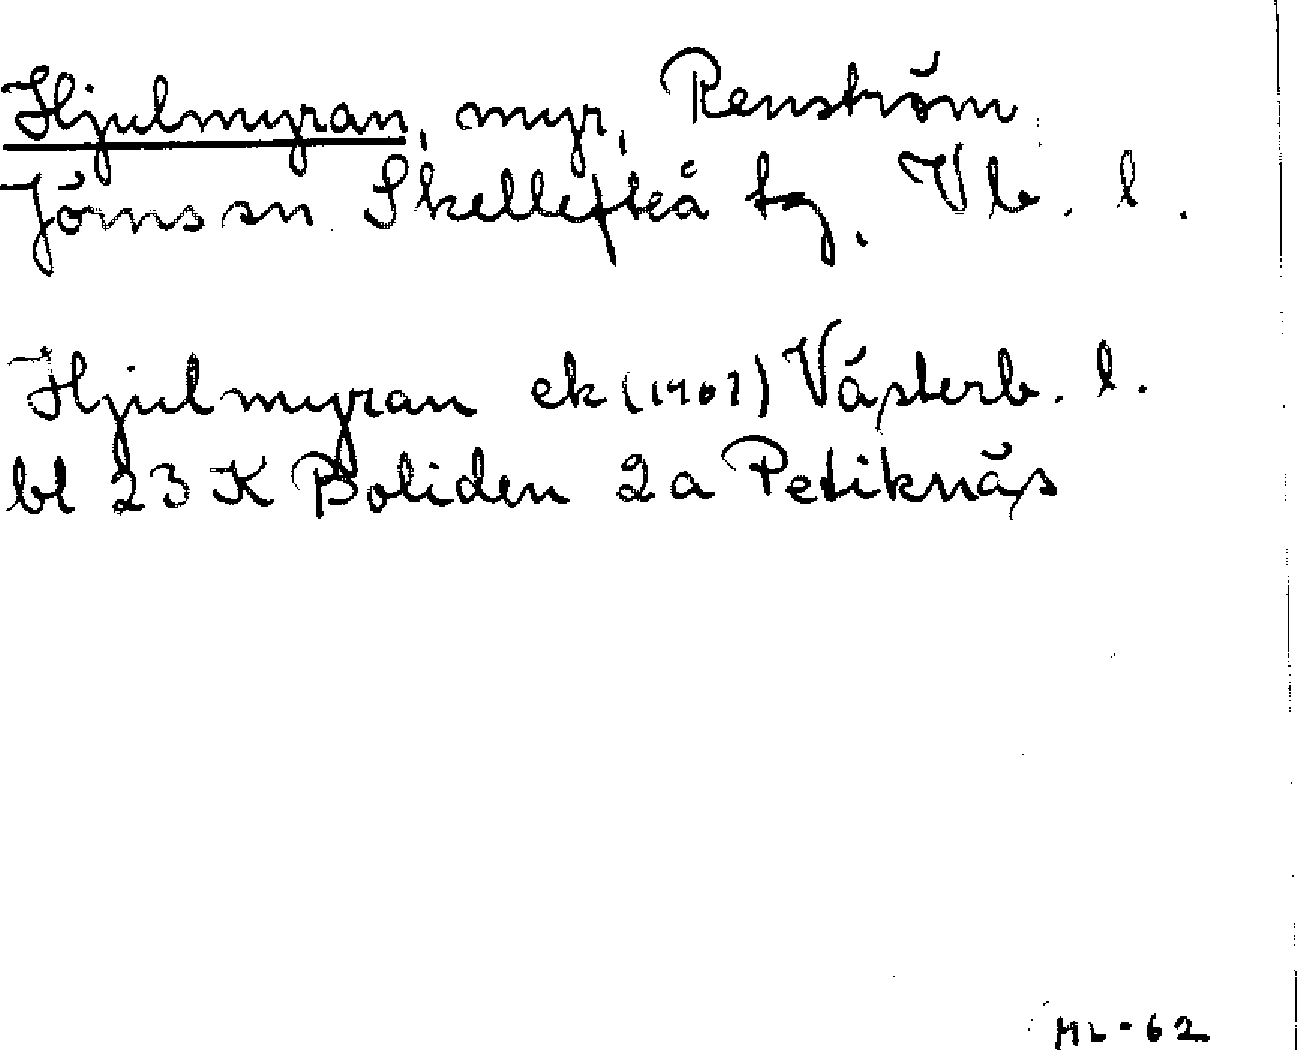 Hjulmyran, myr, Renström
Jörns sn Skellefteå tg. Vb. l.
Hjulmyran ek (1961) Västerb. l.
bl 23 K Boliden 2a Petiknäs
ML-62